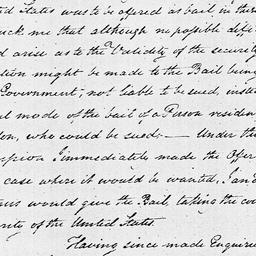 ted States was to be offered as bail in the
uck me that although no possible diff
d arise as to the Validity of the security
tion might be made to the Bail being
Government, not liable to be sued, inste
l mode of the bail of a Person residen
on, who could be sued — Under th
pion I immediately made the Offer
case where it would be wanted, I an
would give the Bail, taking the co
rity of the United States.
Having since made Enquirie